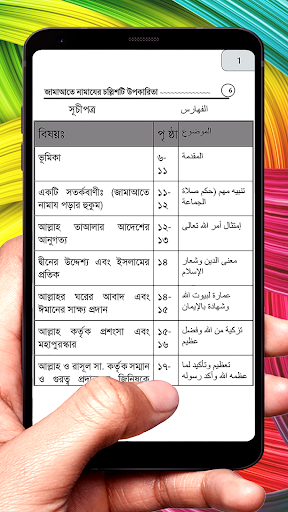 1
জামাআতে নামাযের চল্লিশটি উপকারিতা 6
সূচীপত্র الفهارس
বিষয়ঃ পৃ ষ্ঠা الموضوع
ভূমিকা ৬- المقدمة
১১
একটি সতর্কবাণীঃ (জামাআতে ১১- تنبيه مهم (حكم صلاة
নামায পড়ার হুকুম) ১২ الجماعة
আল্লাহ তাআলার আদেশের ১২- إمتثال أمر الله تعالى
আনুগত্য ১৩
দ্বীনের উদ্দেশ্য এবং ইসলামের ১৪ معنى الدين وشعار
প্রতিক الإسلام
আল্লাহর ঘরের আবাদ এবং ১৪- عمارة لبيوت الله
ঈমানের সাক্ষ্য প্রদান ১৫ وشهادة بالإيمان
আল্লাহ কর্তৃক প্রশংসা এবং ১৫- تزكية من الله وفضل
মহাপুরস্কার ১৬ عظيم
আল্লাহ ও রাসূল সা. কর্তৃক সম্মান ১৭- تعظيم وتأكيد لما
ও গুরত্ব জিনিষকে عظمه الله وأكد رسوله